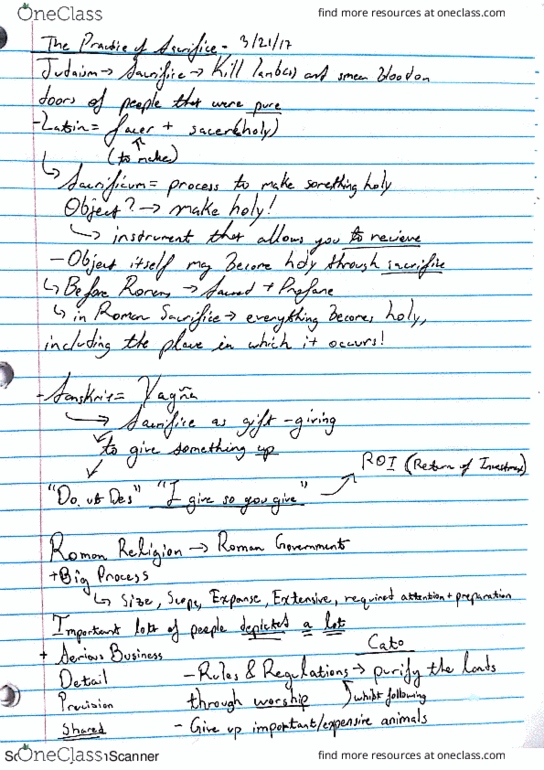 OneClass
find more resources at oneclass.com
The Practice of Sacrifice - 3/21/17
Judaism → Sacrifice → Kill lambs and smear blood on
doors of people that were pure
- Latin = facer + sacer (holy)
(to make)
↳ Sacrificum = process to make something holy
Object? → make holy!
↳ instrument that allows you to recieve
- Object itself may become holy through sacrifice
↳ Before Romans → Sacred + Profane
↳ in Roman Sacrifice → everything becomes holy,
including the place in which it occurs!
- Sanskrit = Yagña
→ Sacrifice as gift-giving
to give something up
ROI (Return of Investment)
"Do, ut Des" "I give so you give"
Roman Religion → Roman Government
+ Big Process
↳ Size, Scope, Expanse, Extensive, required attention + preparation
Important lots of people depicted a lot
+ Serious Business
Cato
Detail - Rules & Regulations → purify the lands
Precision through worship whilst following
Shared - Give up important/expensive animals
OneClass
Scanner
find more resources at oneclass.com